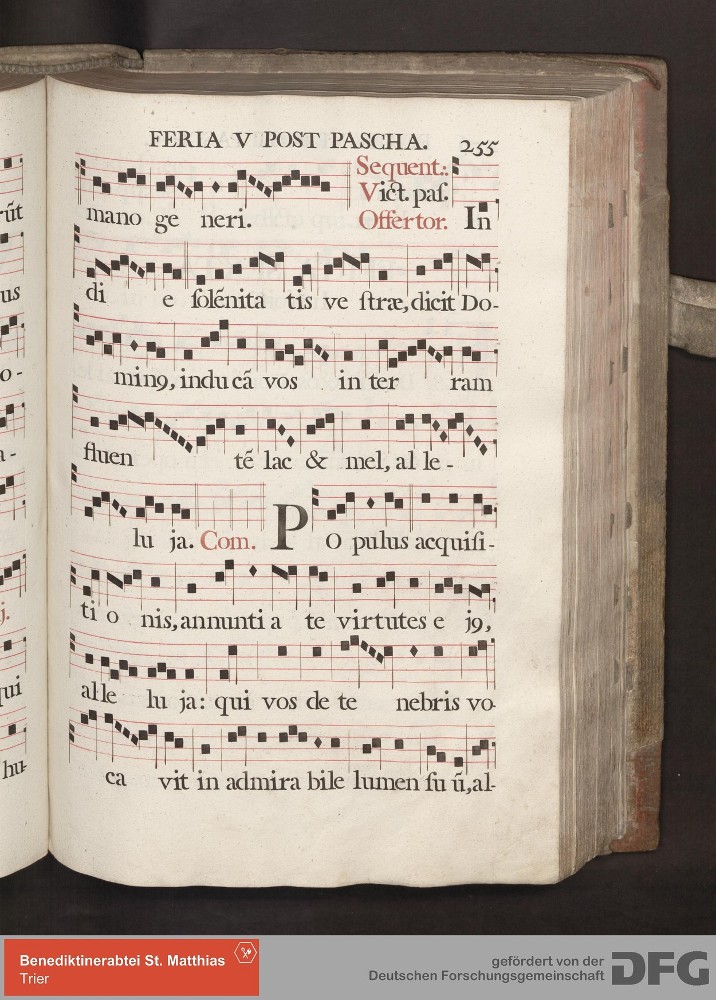 FERIA V POST PASCHA. 255
Sequent.:
Vict. pas.
mano ge neri. Offertor. In
di e solẽnita tis ve stræ, dicit Do-
min9, indu cã vos in ter ram
fluen tẽ lac & mel, al le-
lu ja. Com. PO pulus acquisi-
ti o nis, annunti a te virtutes e j9,
alle lu ja: qui vos de te nebris vo-
ca vit in admira bile lumen su ũ, al-
rũt
us
o-
a-
j.
qui
hu-
Benediktinerabtei St. Matthias
Trier
gefördert von der
Deutschen Forschungsgemeinschaft DFG